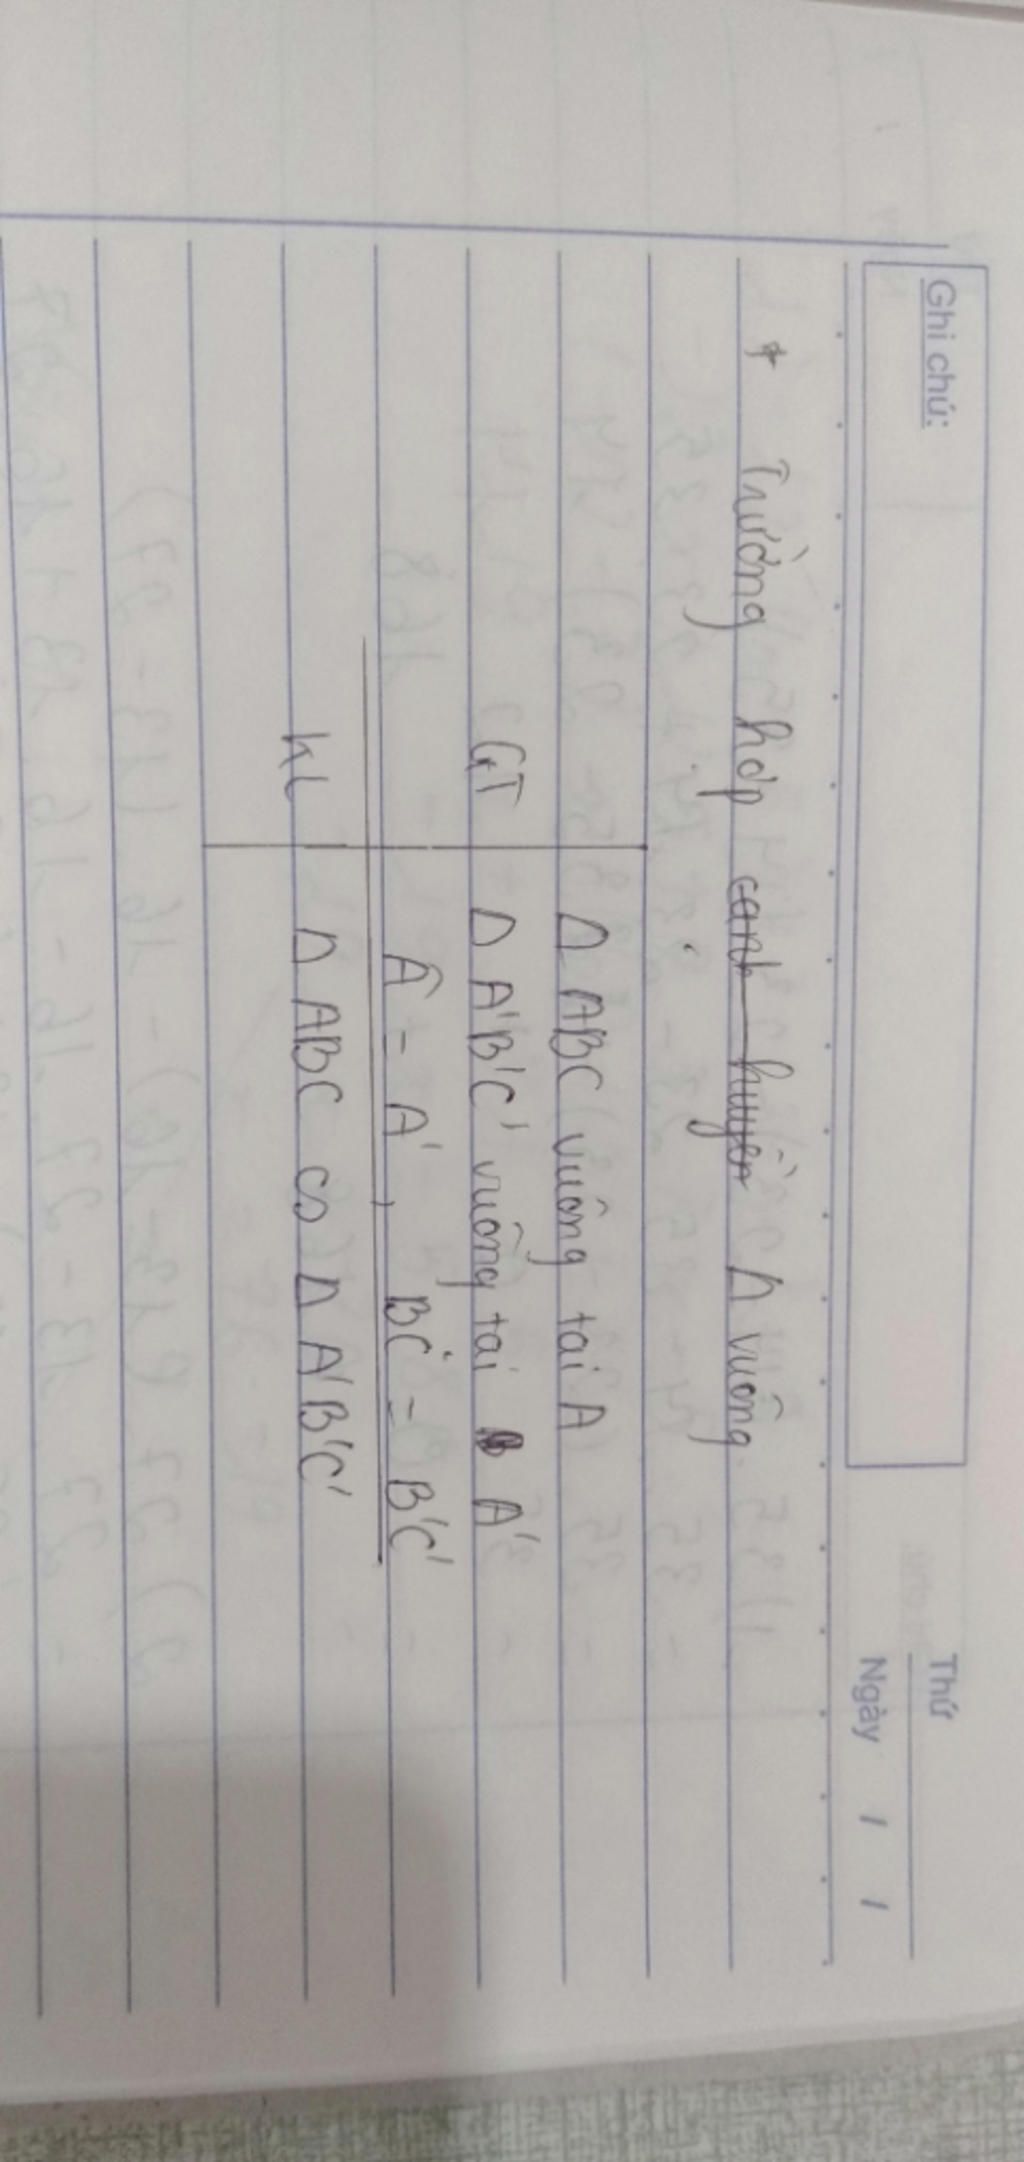 Ghi chú:
Thứ
Ngày / /
* Trường hợp cạnh huyền Δ vuông.
Δ ABC vuông tại A
GT Δ A'B'C' vuông tại A'
Â = A', BC = B'C'
KL Δ ABC ∽ Δ A'B'C'